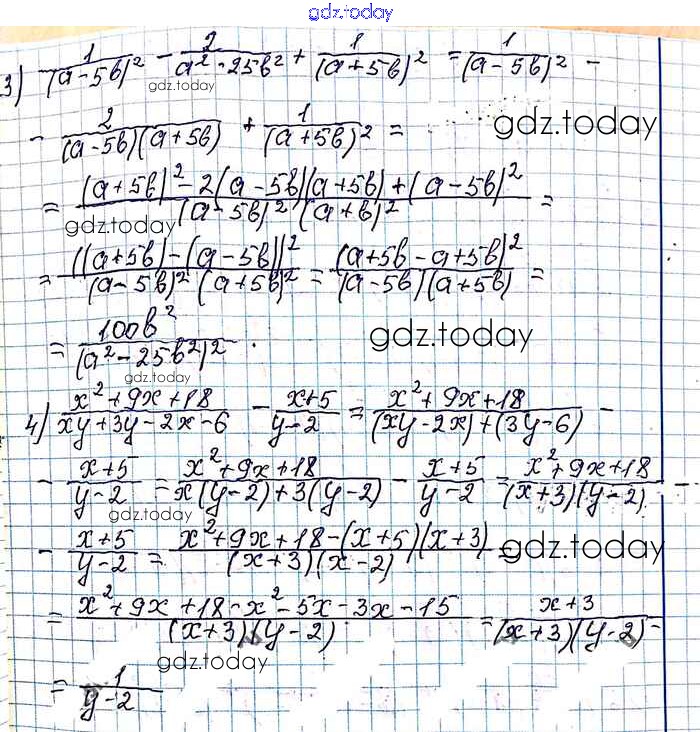 gdz.today
3) 1/(a-5b)² - 2/(a²-25b²) + 1/(a+5b)² = 1/(a-5b)² -
gdz.today
- 2/((a-5b)(a+5b)) + 1/(a+5b)² =
gdz.today
= ((a+5b)²-2(a-5b)(a+5b)+(a-5b)²)/((a-5b)²(a+b)²) =
gdz.today
= ((a+5b)-(a-5b))²/((a-5b)²(a+5b)²) = (a+5b-a+5b)²/((a-5b)(a+5b)) =
= 100b²/(a²-25b²)².
gdz.today
gdz.today
4) (x²+9x+18)/(xy+3y-2x-6) - (x+5)/(y-2) = (x²+9x+18)/((xy-2x)+(3y-6)) -
- (x+5)/(y-2) = (x²+9x+18)/(x(y-2)+3(y-2)) - (x+5)/(y-2) = (x²+9x+18)/((x+3)(y-2)) -
gdz.today
- (x+5)/(y-2) = (x²+9x+18-(x+5)(x+3))/((x+3)(x-2)) =
gdz.today
= (x²+9x+18-x²-5x-3x-15)/((x+3)(y-2)) = (x+3)/((x+3)(y-2)) =
gdz.today
= 1/(y-2)